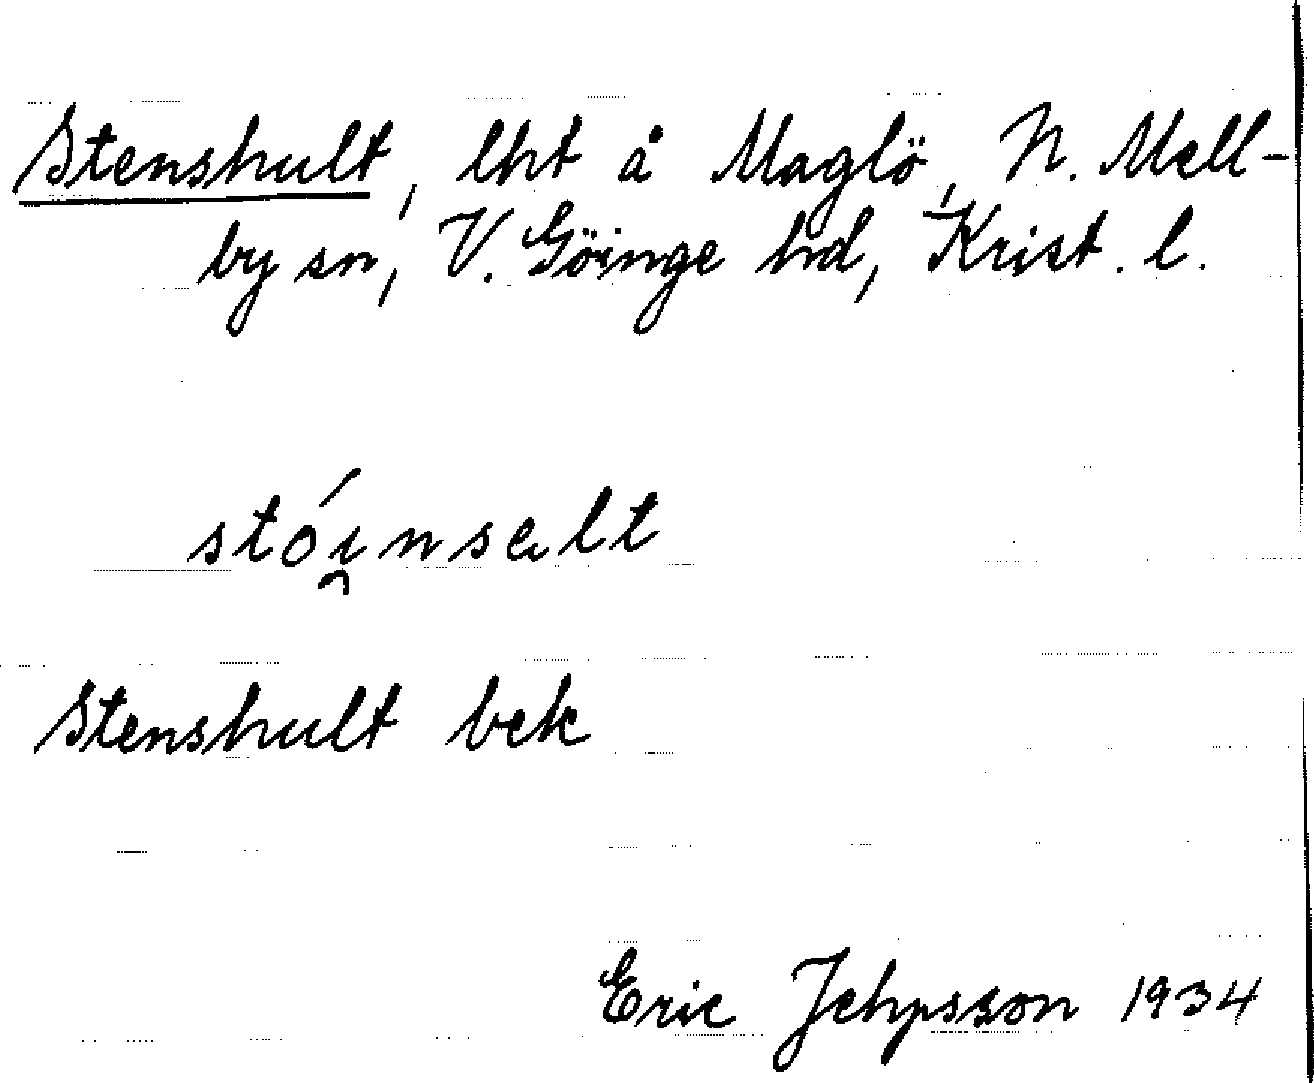 Stenshult, lht å Maglö, N. Mell-
by sn, V. Göinge hd, Krist. l.
stói̯nsalt
Stenshult bek
Eric Jehpsson 1934